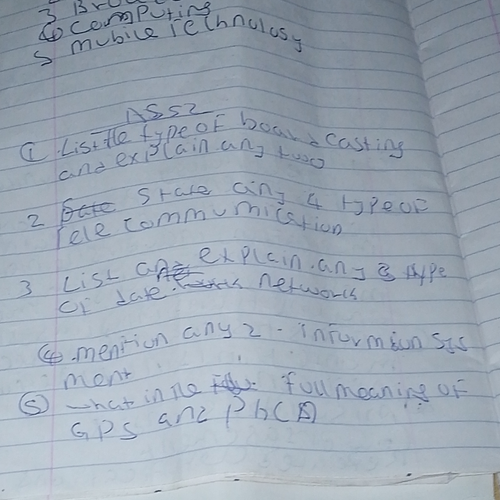 3 Bro
④ Computing
5 mobile Technology
ASS2
① List the type of boardcasting
and explain any two
2 State any 4 type of
Tele communication
3 List and explain any 3 type
of date networks
④ mention any 2 - informion sis
ment
⑤ what in the full meaning of
GPS and